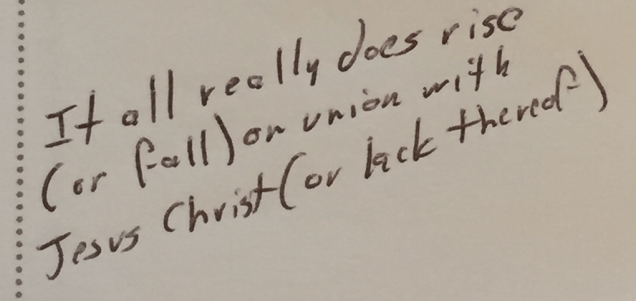 It all really does rise
(or fall) on union with
Jesus Christ (or lack thereof)